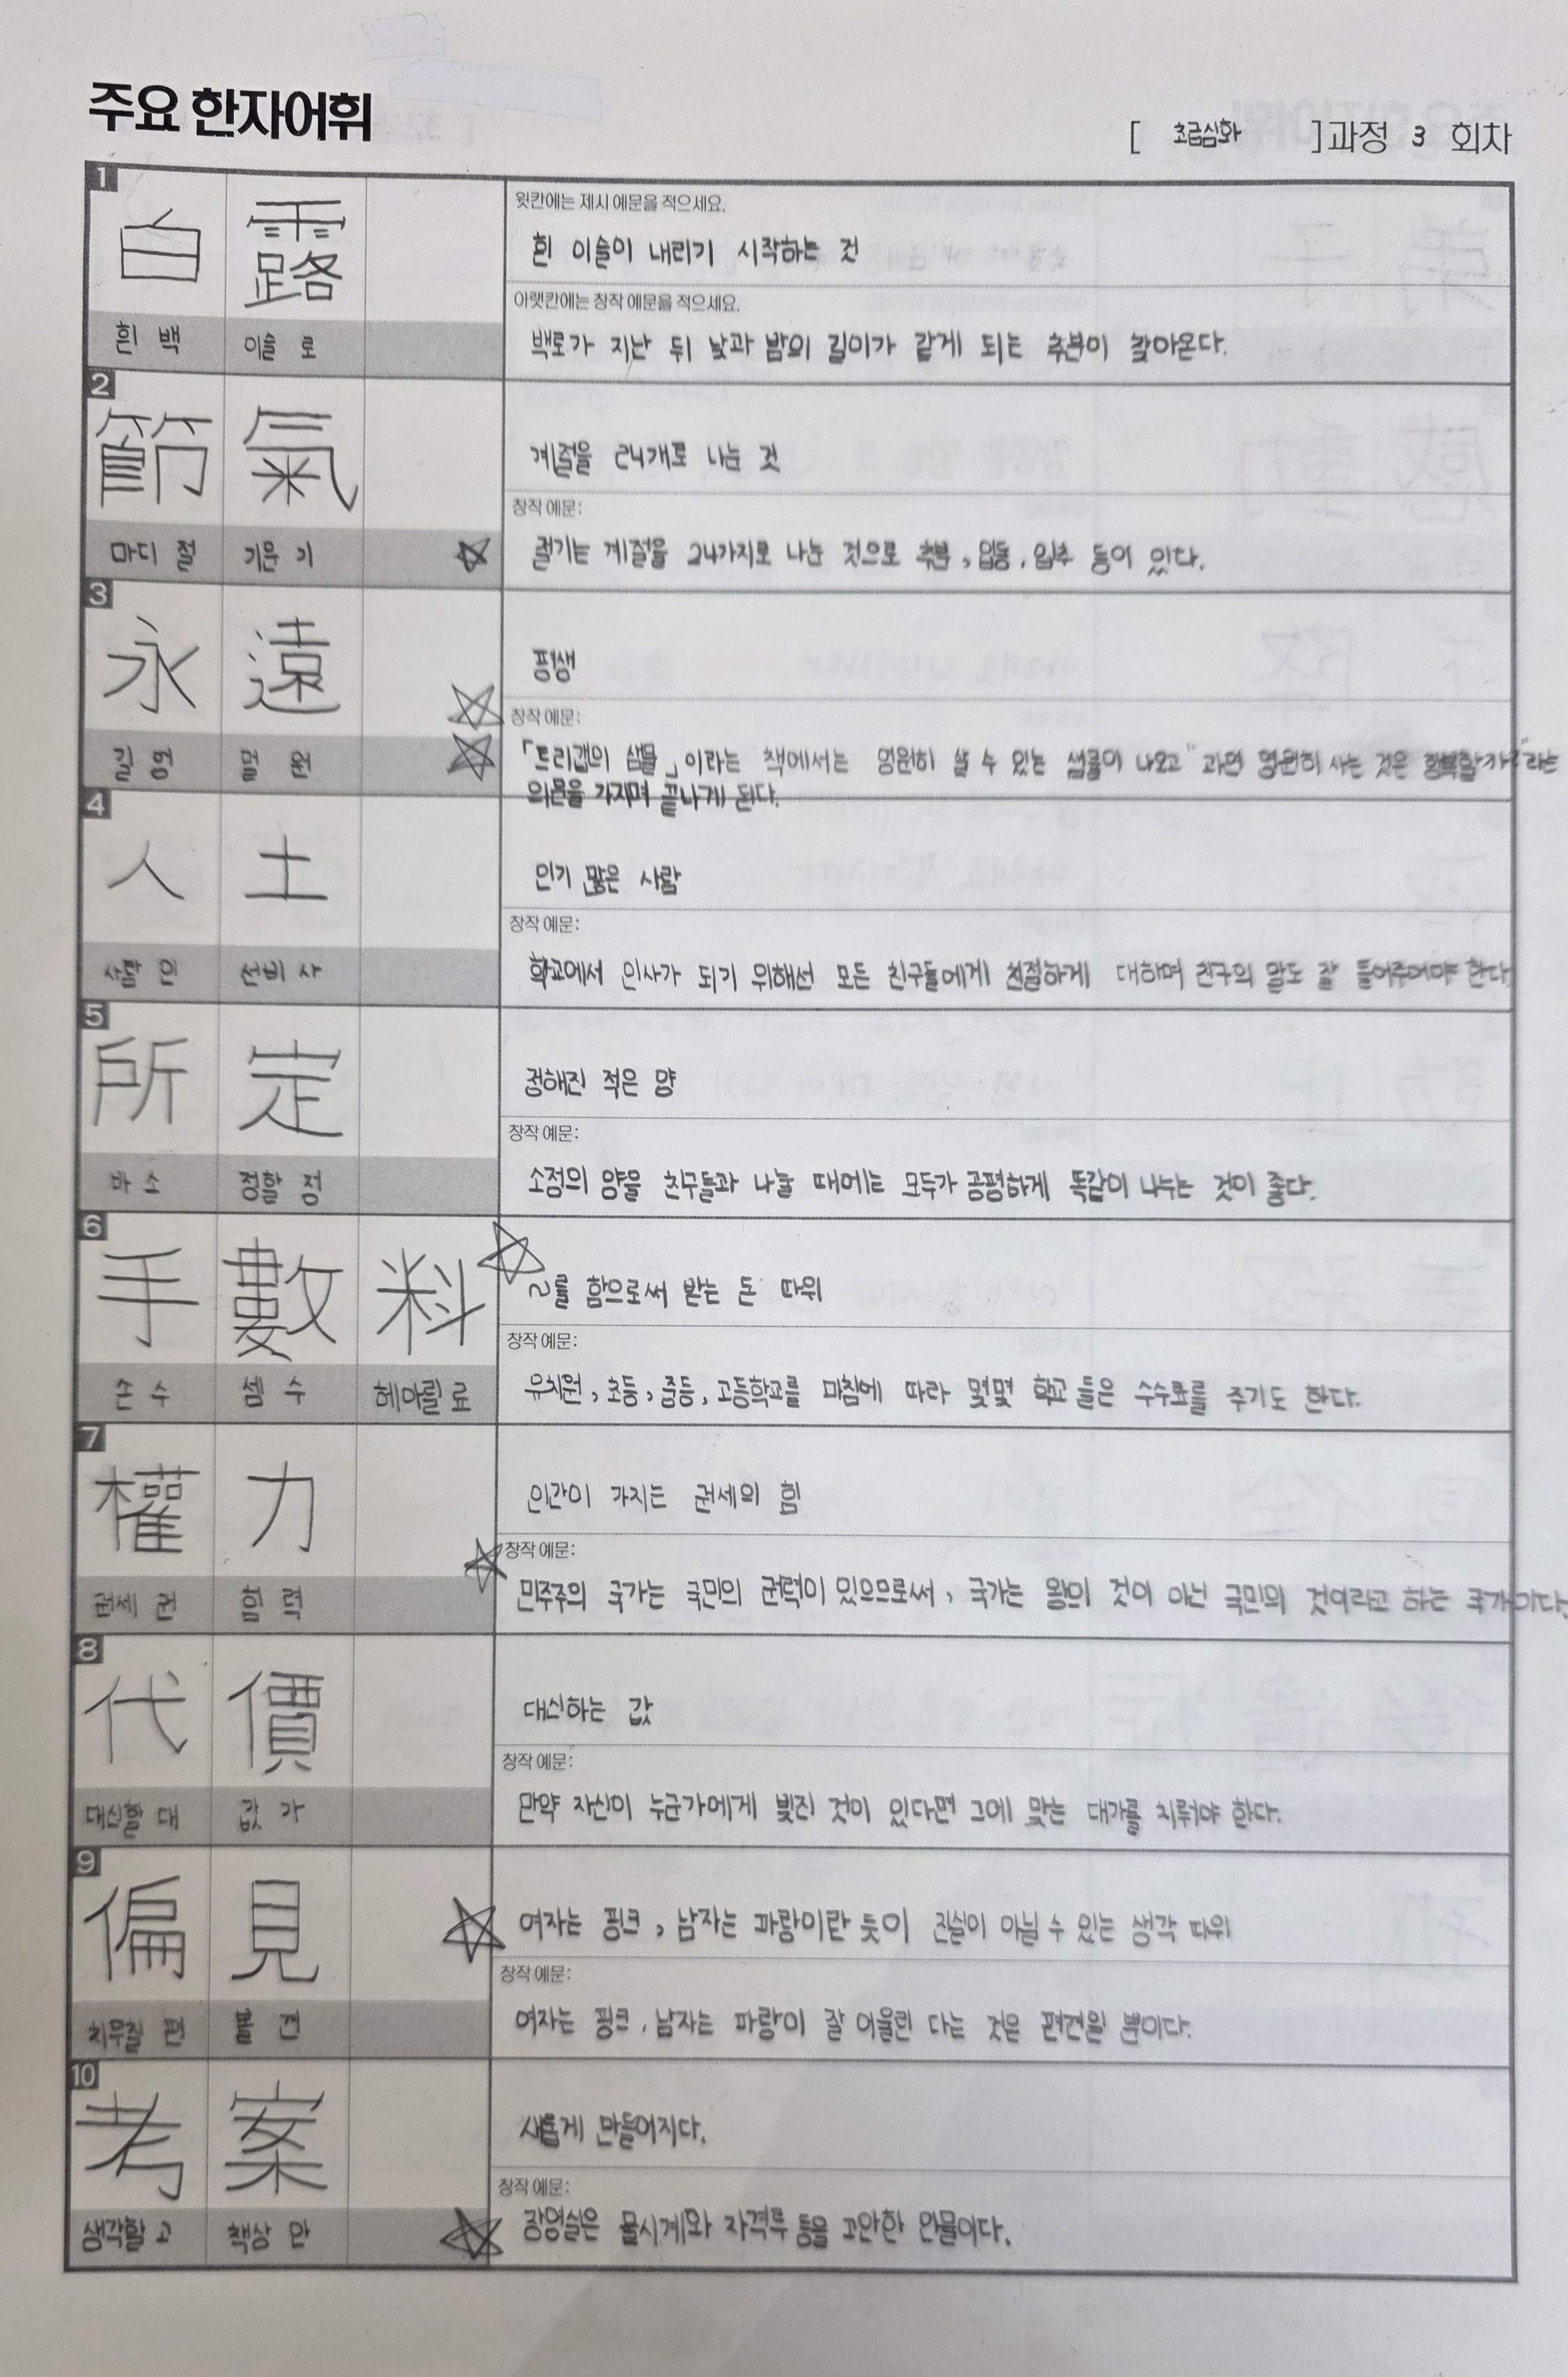 주요 한자어휘
[ 초급심화 ]과정 3 회차
1
白 露
흰 백 이슬 로
윗칸에는 제시 예문을 적으세요.
흰 이슬이 내리기 시작하는 것
아랫칸에는 창작 예문을 적으세요.
백로가 지난 뒤 낮과 밤의 길이가 같게 되는 추분이 찾아온다.
2
節 氣
마디 절 기운 기
계절을 24개로 나눈 것
창작 예문:
절기는 계절을 24가지로 나눈 것으로 추분, 입동, 입추 등이 있다.
3
永 遠
길 영 멀 원
평생
창작 예문:
「트리갭의 샘물」이라는 책에서는 영원히 살 수 있는 샘물이 나오고 "과연 영원히 사는 것은 행복할까?"라는
의문을 가지며 끝나게 된다.
4
人 士
사람 인 선비 사
인기 많은 사람
창작 예문:
학교에서 인사가 되기 위해선 모든 친구들에게 친절하게 대하며 친구의 말도 잘 들어주어야 한다.
5
所 定
바 소 정할 정
정해진 적은 양
창작 예문:
소정의 양을 친구들과 나눌 때에는 모두가 공평하게 똑같이 나누는 것이 좋다.
6
手 數 料
손 수 셈 수 헤아릴 료
를 함으로써 받는 돈 따위
창작 예문:
유치원, 초등, 중등, 고등학교를 마침에 따라 몇몇 학교들은 수수료를 주기도 한다.
7
權 力
권세 권 힘 력
인간이 가지는 권세의 힘
창작 예문:
민주주의 국가는 국민의 권력이 있으므로써, 국가는 왕의 것이 아닌 국민의 것이라고 하는 국가이다.
8
代 價
대신할 대 값 가
대신하는 값
창작 예문:
만약 자신이 누군가에게 빚진 것이 있다면 그에 맞는 대가를 치뤄야 한다.
9
偏 見
치우칠 편 볼 견
여자는 핑크, 남자는 파랑이란 듯이 진실이 아닐 수 있는 생각 따위
창작 예문:
여자는 핑크, 남자는 파랑이 잘 어울린 다는 것은 편견일 뿐이다.
10
考 案
생각할 고 책상 안
새롭게 만들어지다.
창작 예문:
장영실은 물시계와 자격루 등을 고안한 인물이다.